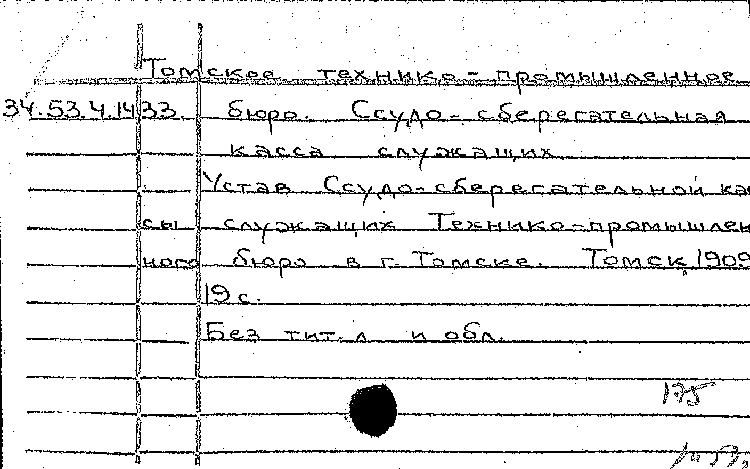 Томское технико-промышленное
34.53.4.1433. бюро. Ссудо-сберегательная
касса служащих.
Устав Ссудо-сберегательной кас
сы служащих Технико-промышлен
ного бюро в г. Томске. Томск, 1909
19 с.
Без тит. л и обл.
175